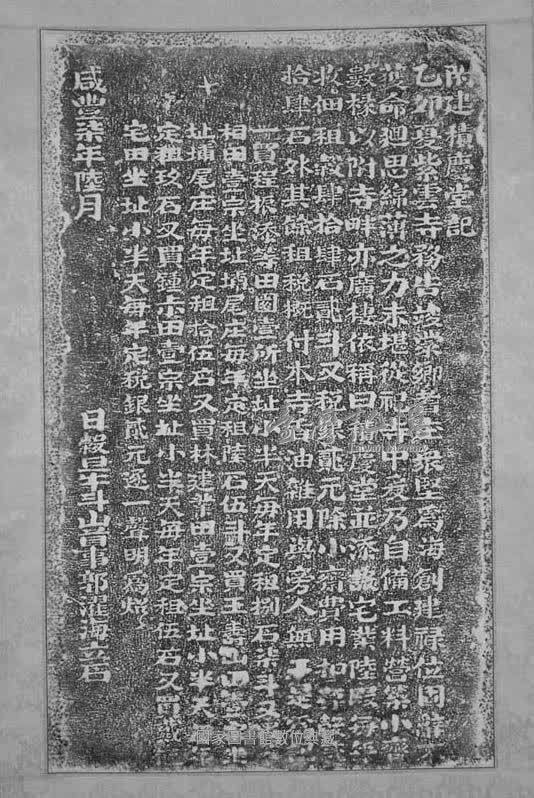 改建積慶堂記
乙卯夏紫雲寺務告竣蒙鄉耆董眾堅為海創建祿位固辭
莫命迴思綿薄之力未堪從祀寺中爰乃自備工料營築小
數椽以附寺畔亦廣棲依稱曰積慶堂並添置宅業陸段每年
收佃租穀肆拾肆石貳斗又稅銀貳元除小齋費用
拾肆石外其餘租稅概付本寺香油雜用與旁人無
一買程振添等田園壹所坐址小半天每年定租捌石柒斗又
相田壹宗坐址埔尾庄每年定租陸石伍斗又買王
址埔尾庄每年定租拾伍石又買林建華田壹宗坐址小半天
定租玖石又買鍾 田壹宗坐址小半天每年定租伍石又買
宅田坐址小半天每年定稅銀貳元逐一聲明為炤
咸豐柒年陸月 日穀旦 斗山首事郭 海立石
國家圖書館數位典藏